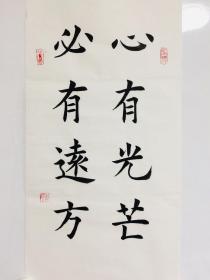 心有光芒
必有遠方